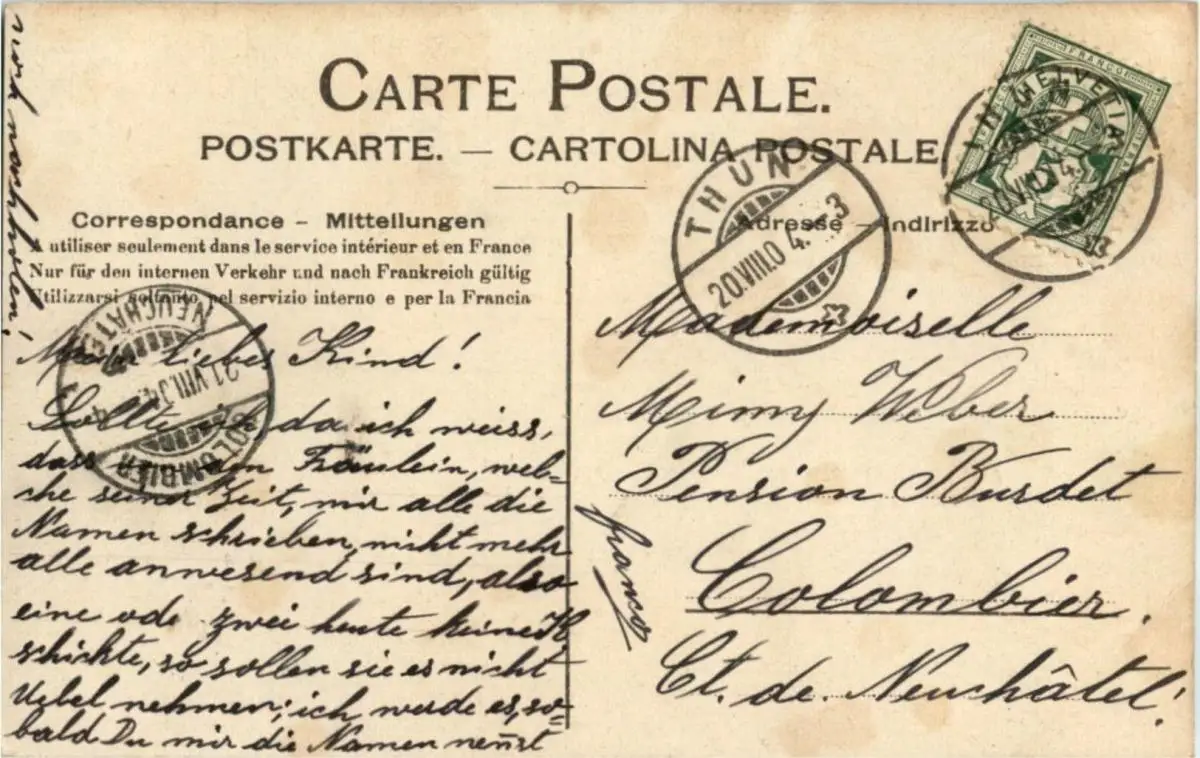 CARTE POSTALE.
POSTKARTE. — CARTOLINA POSTALE
Correspondance – Mitteilungen
A utiliser seulement dans le service intérieur et en France
Nur für den internen Verkehr und nach Frankreich gültig
Utilizzarsi soltanto nel servizio interno e per la Francia
Adresse – Indirizzo
FRANCO
HELVETIA
THUN
20.VIII.04.
THUN
20.VIII.04. 3
NEUCHATEL
21.VIII.04.
COLOMBIER
Mein liebes Kind!
Sollte ich da ich weiss,
dass von den Fräulein, wel-
che seiner Zeit, mir alle die
Namen schrieben, nicht mehr
alle anwesend sind, also
eine ode zwei heute keine K.
schickte, so sollen sie es nicht
Uebel nehmen; ich werde es, so-
bald Du mir die Namen nennst
noch nachholen!
Mademoiselle
Mimy Weber
Pension Burdet
Colombier.
Ct. de Neuchâtel!
franco